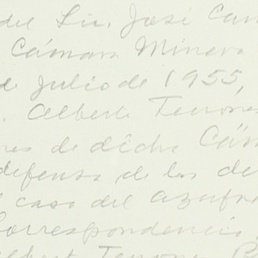 del Lic. José
Cámara Minera
de Julio de 1955,
Alberto Terrones
de dicha Cám
defensa de los de
caso del azufre
Correspondencia
Terrones